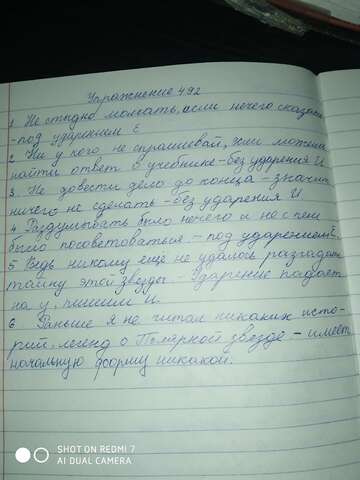 Упражнение 492
1. Не стыдно молчать, если нечего сказать
-под ударением Е
2 Ни у кого не спрашивай, если можешь
найти ответ в учебнике-без ударения И
3. Не довести дело до конца - значит
ничего не сделать - без ударения И
4 Раздумывать было нечего и не с кем
было посоветоваться. - под ударением Е
5 Ведь никому ещё не удалось разгадать
тайну этой звезды. - Ударение падает
на у, пишем и.
6 Раньше я не читал никаких исто-
рий, легенд о Полярной звезде - имеет
начальную форму никакой.
SHOT ON REDMI 7
AI DUAL CAMERA